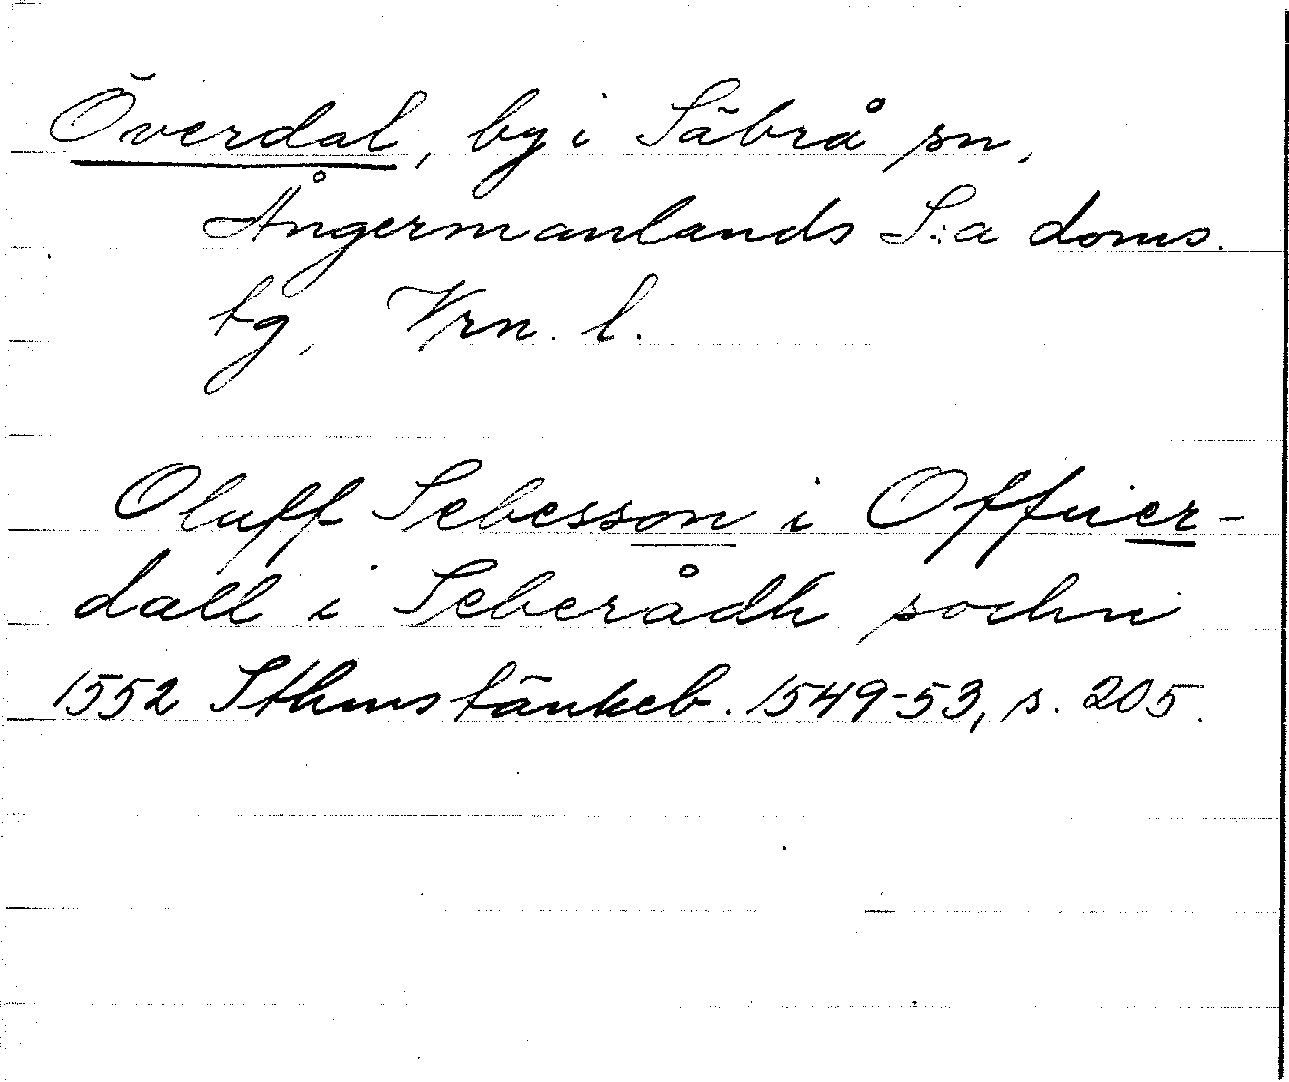 Överdal, by i Säbrå sn,
Ångermanlands S:a doms.
tg, Vrn. l.
Oluff Sebesson i Offuer-
dall i Seberådh sochn
1552 Sthms tänkeb. 1549-53, s. 205.